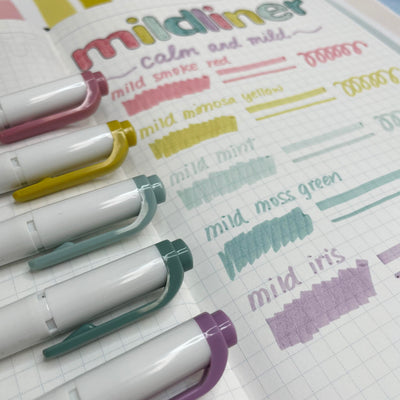 mildliner
calm and mild.
mild smoke red
mild mimosa yellow
mild mint
mild moss green
mild iris